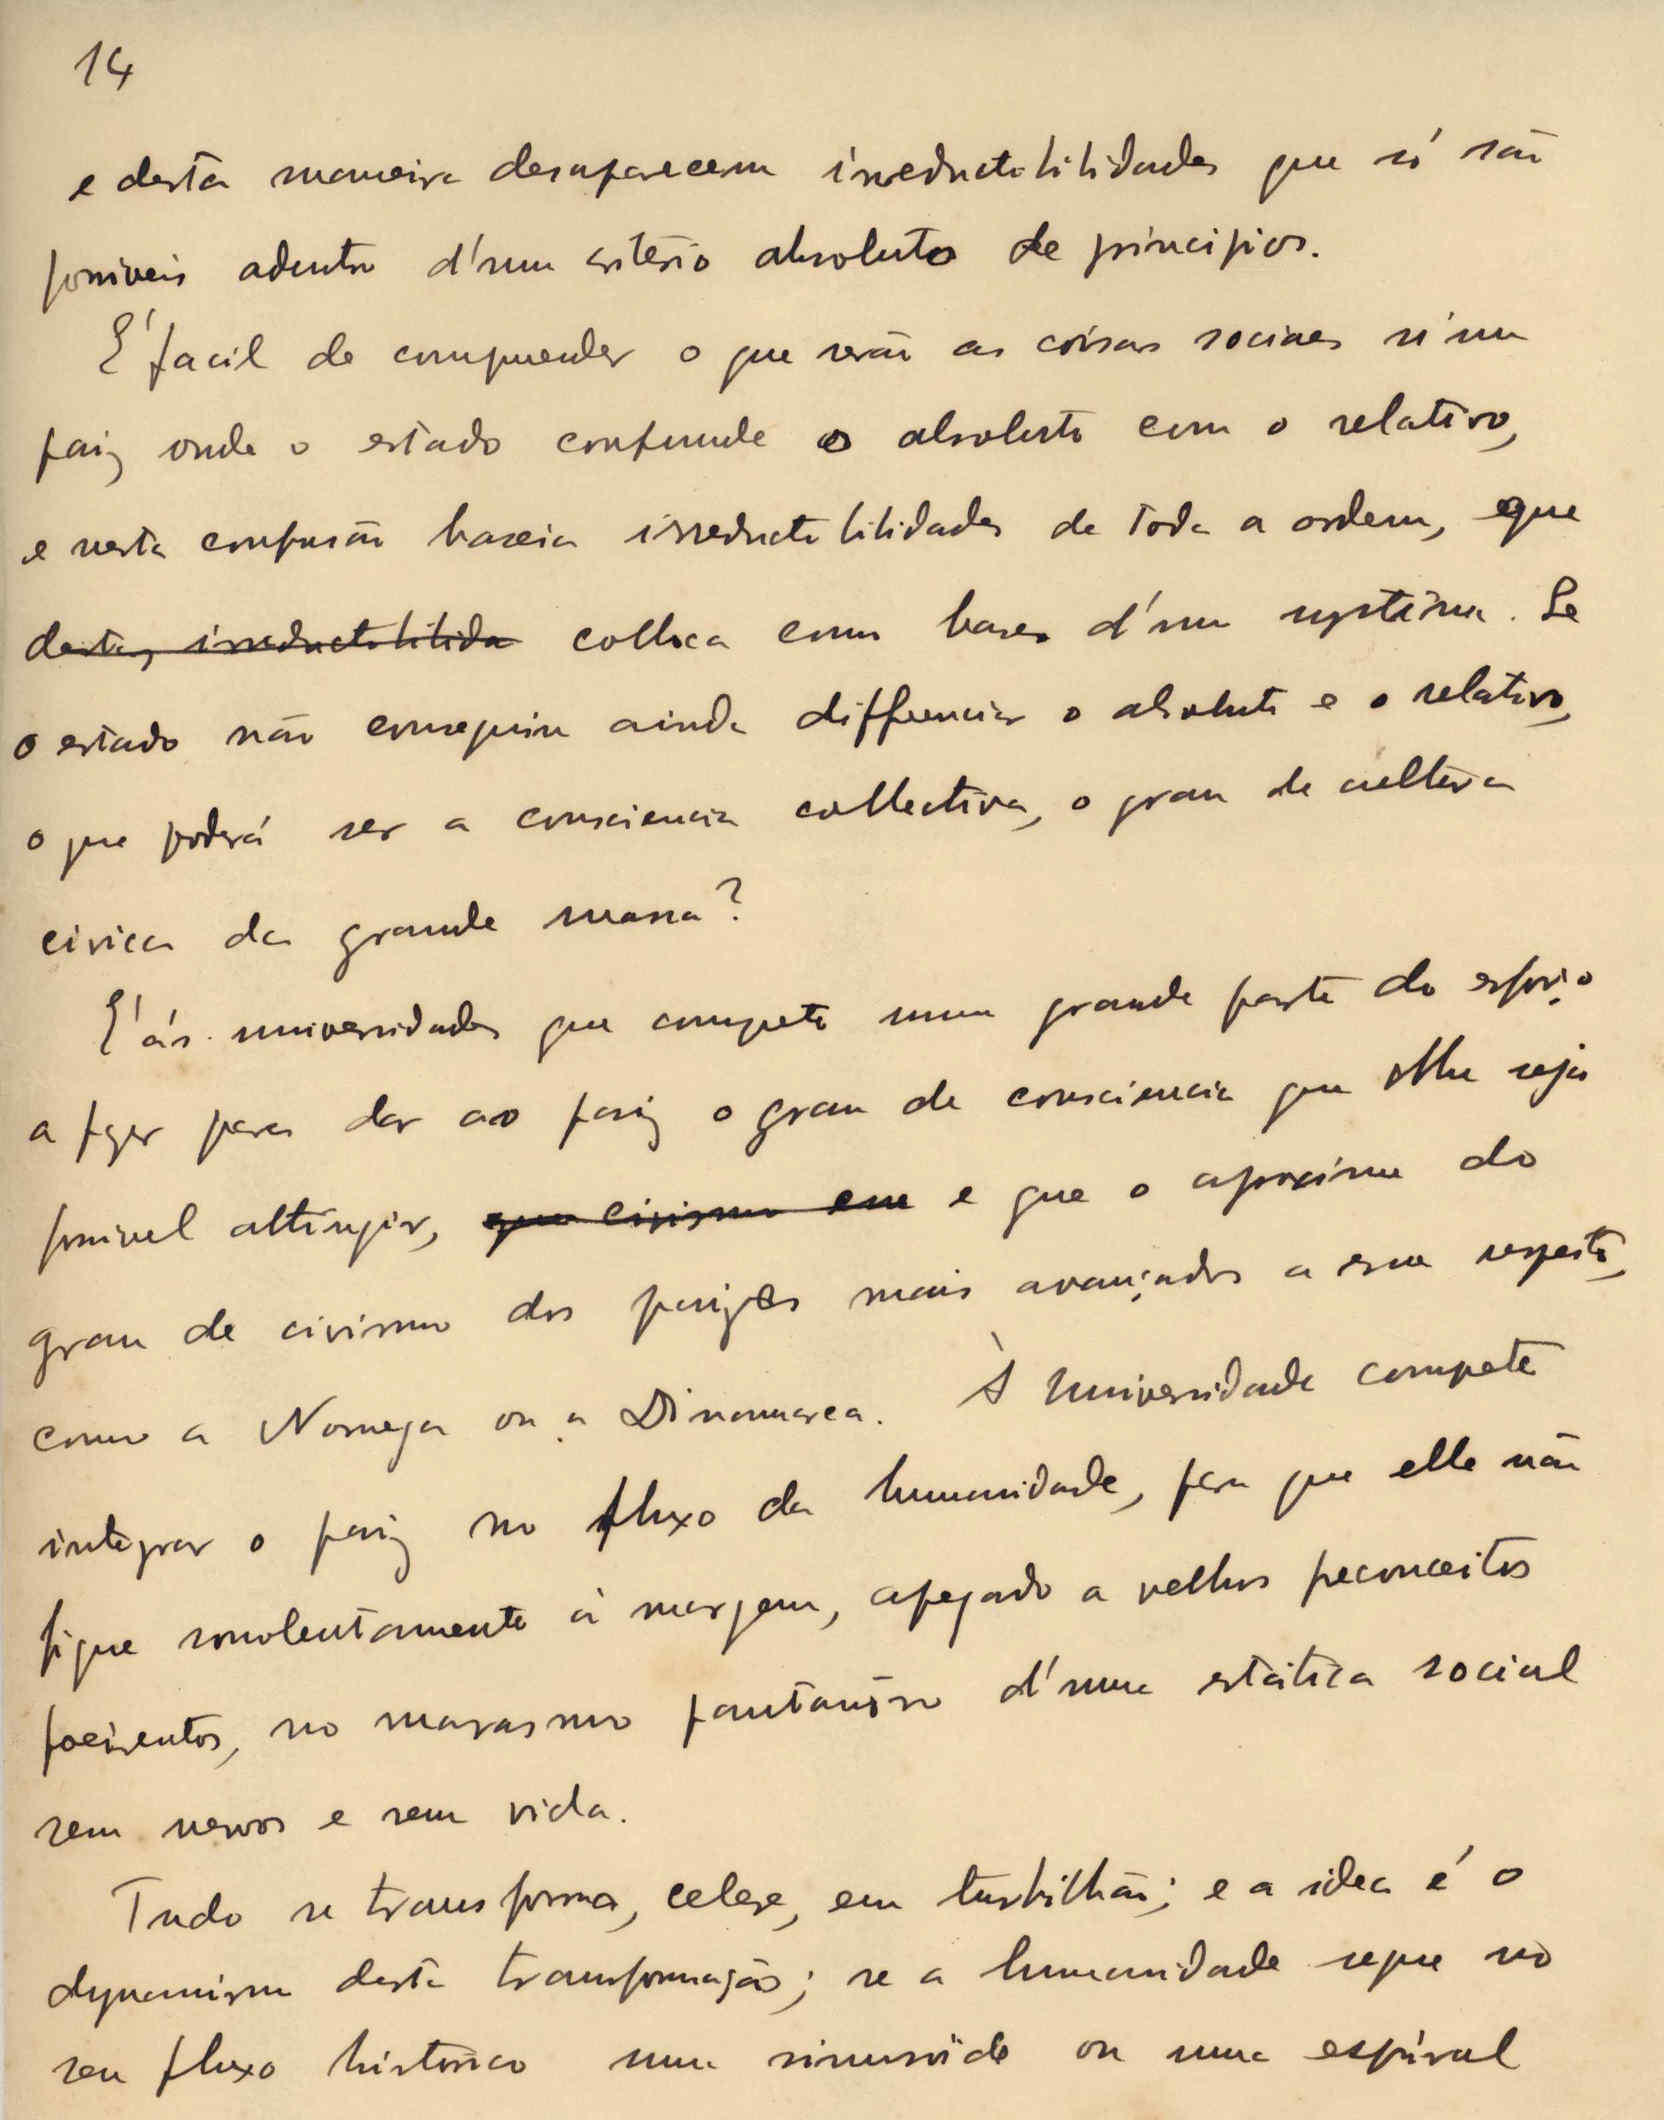 14
e desta maneira desaparecem irreductibilidades que só são
possiveis adentro d'um critério absoluto de principios.
É facil de comprender o que serão as coisas sociaes n'um
paiz onde o estado confunde o absoluto com o relativo,
e nesta confusão baseia irreductibilidades de toda a ordem, e que
destas irreductibilida colloca como bases d'um systema. Se
o estado não conseguiu ainda differenciar o absoluto e o relativo,
o que poderá ser a consciencia collectiva, o grau de cultura
civica da grande massa?
É ás universidades que compete uma grande parte do esforço
a fazer para dar ao paiz o grau de consciencia que lhe seja
possivel attingir, que civismo em e que o aproxime do
grau de civismo dos paizes mais avançados a esse respeito,
como a Noruega ou a Dinamarca. À Universidade compete
integrar o paiz no fluxo da humanidade, para que elle não
fique sonolentamente á margem, apegado a velhos preconceitos
poeirentos, no marasmo pantanoso d'uma estática social
sem nervos e sem vida.
Tudo se transforma, celere, em turbilhão; e a idea é o
dynamismo desta transformação; se a humanidade segue no
seu fluxo histórico uma sinusóide ou uma espiral